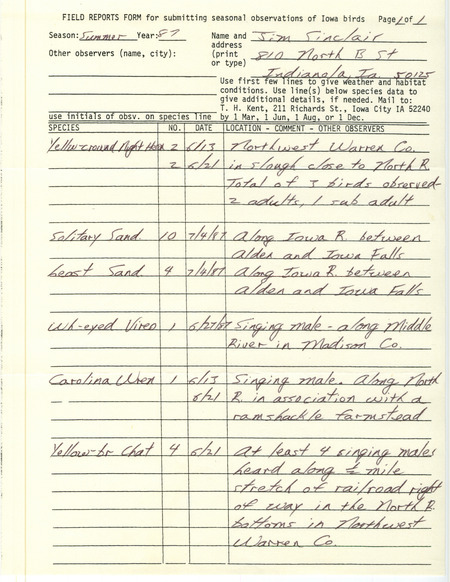 FIELD REPORTS FORM for submitting seasonal observations of Iowa birds Page 1 of 1
Season: Summer Year: 87 Name and Jim Sinclair
address
Other observers (name, city): (print 810 North B St
or type)
Indianola, Ia 50125
Use first few lines to give weather and habitat
conditions. Use line(s) below species data to
give additional details, if needed. Mail to:
T. H. Kent, 211 Richards St., Iowa City IA 52240
use initials of obsv. on species line by 1 Mar, 1 Jun, 1 Aug, or 1 Dec.
SPECIES NO. DATE LOCATION - COMMENT - OTHER OBSERVERS
Yellow-crowned Night Heron 2 6/13 Northwest Warren Co.
2 6/21 in slough close to North R.
Total of 3 birds observed-
2 adults, 1 sub adult
Solitary Sand. 10 7/4/87 Along Iowa R. between
Alden and Iowa Falls
Least Sand 4 7/4/87 Along Iowa R. between
Alden and Iowa Falls
Wh-eyed Vireo 1 6/27/87 Singing male - along Middle
River in Madison Co.
Carolina Wren 1 6/13 Singing male. Along North
6/21 R. in association with a
ramshackle farmstead
Yellow-br Chat 4 6/21 At least 4 singing males
heard along mile
stretch of railroad right
of way in the North R.
bottoms in Northwest
Warren Co.